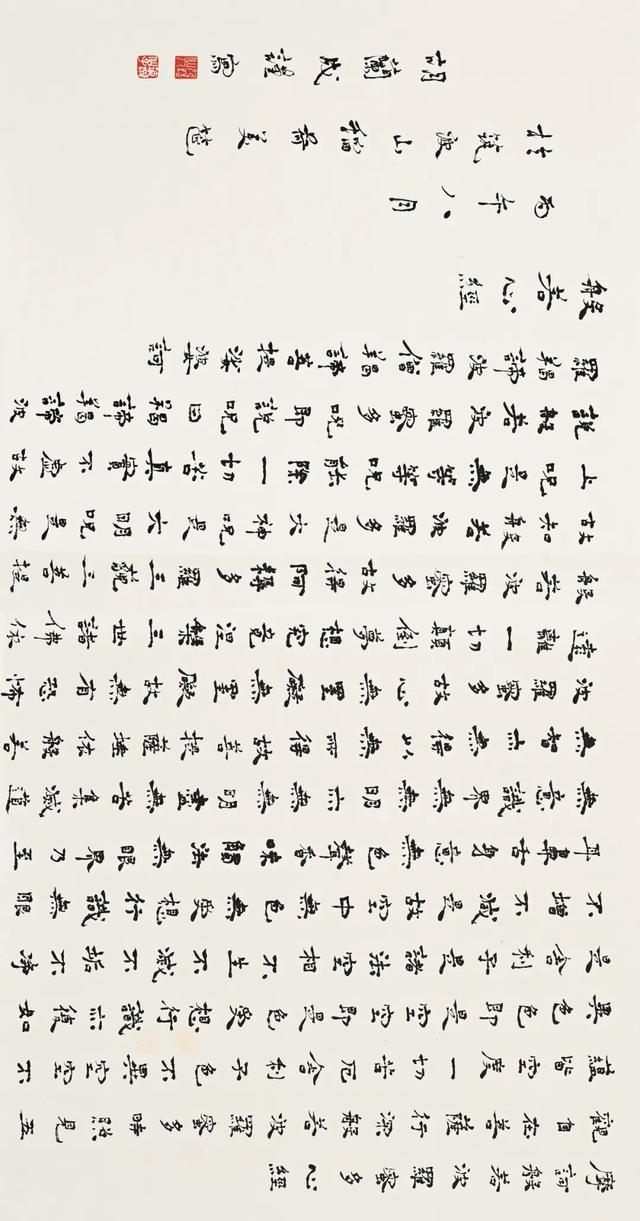 摩訶般若波羅蜜多心經
觀自在菩薩行深般若波羅蜜多時照見五
蘊皆空度一切苦厄舍利子色不異空空不
異色色即是空空即是色受想行識亦復如
是舍利子是諸法空相不生不滅不垢不淨
不增不減是故空中無色無受想行識無眼
耳鼻舌身意無色聲香味觸法無眼界乃至
無意識界無無明亦無無明盡無苦集滅道
無智亦無得以無所得故菩提薩埵依般若
波羅蜜多故心無罣礙無罣礙故無有恐怖
遠離一切顛倒夢想究竟涅槃三世諸佛依
般若波羅蜜多故得阿耨多羅三藐三菩提
故知般若波羅蜜多是大神呪是大明呪是無
上呪是無等等呪能除一切苦真實不虛故
說般若波羅蜜多呪即說呪曰羯諦羯諦波
羅羯諦波羅僧羯諦菩提娑婆訶
般若心經
丙午八月
於筑波山
胡蘭成謹寫